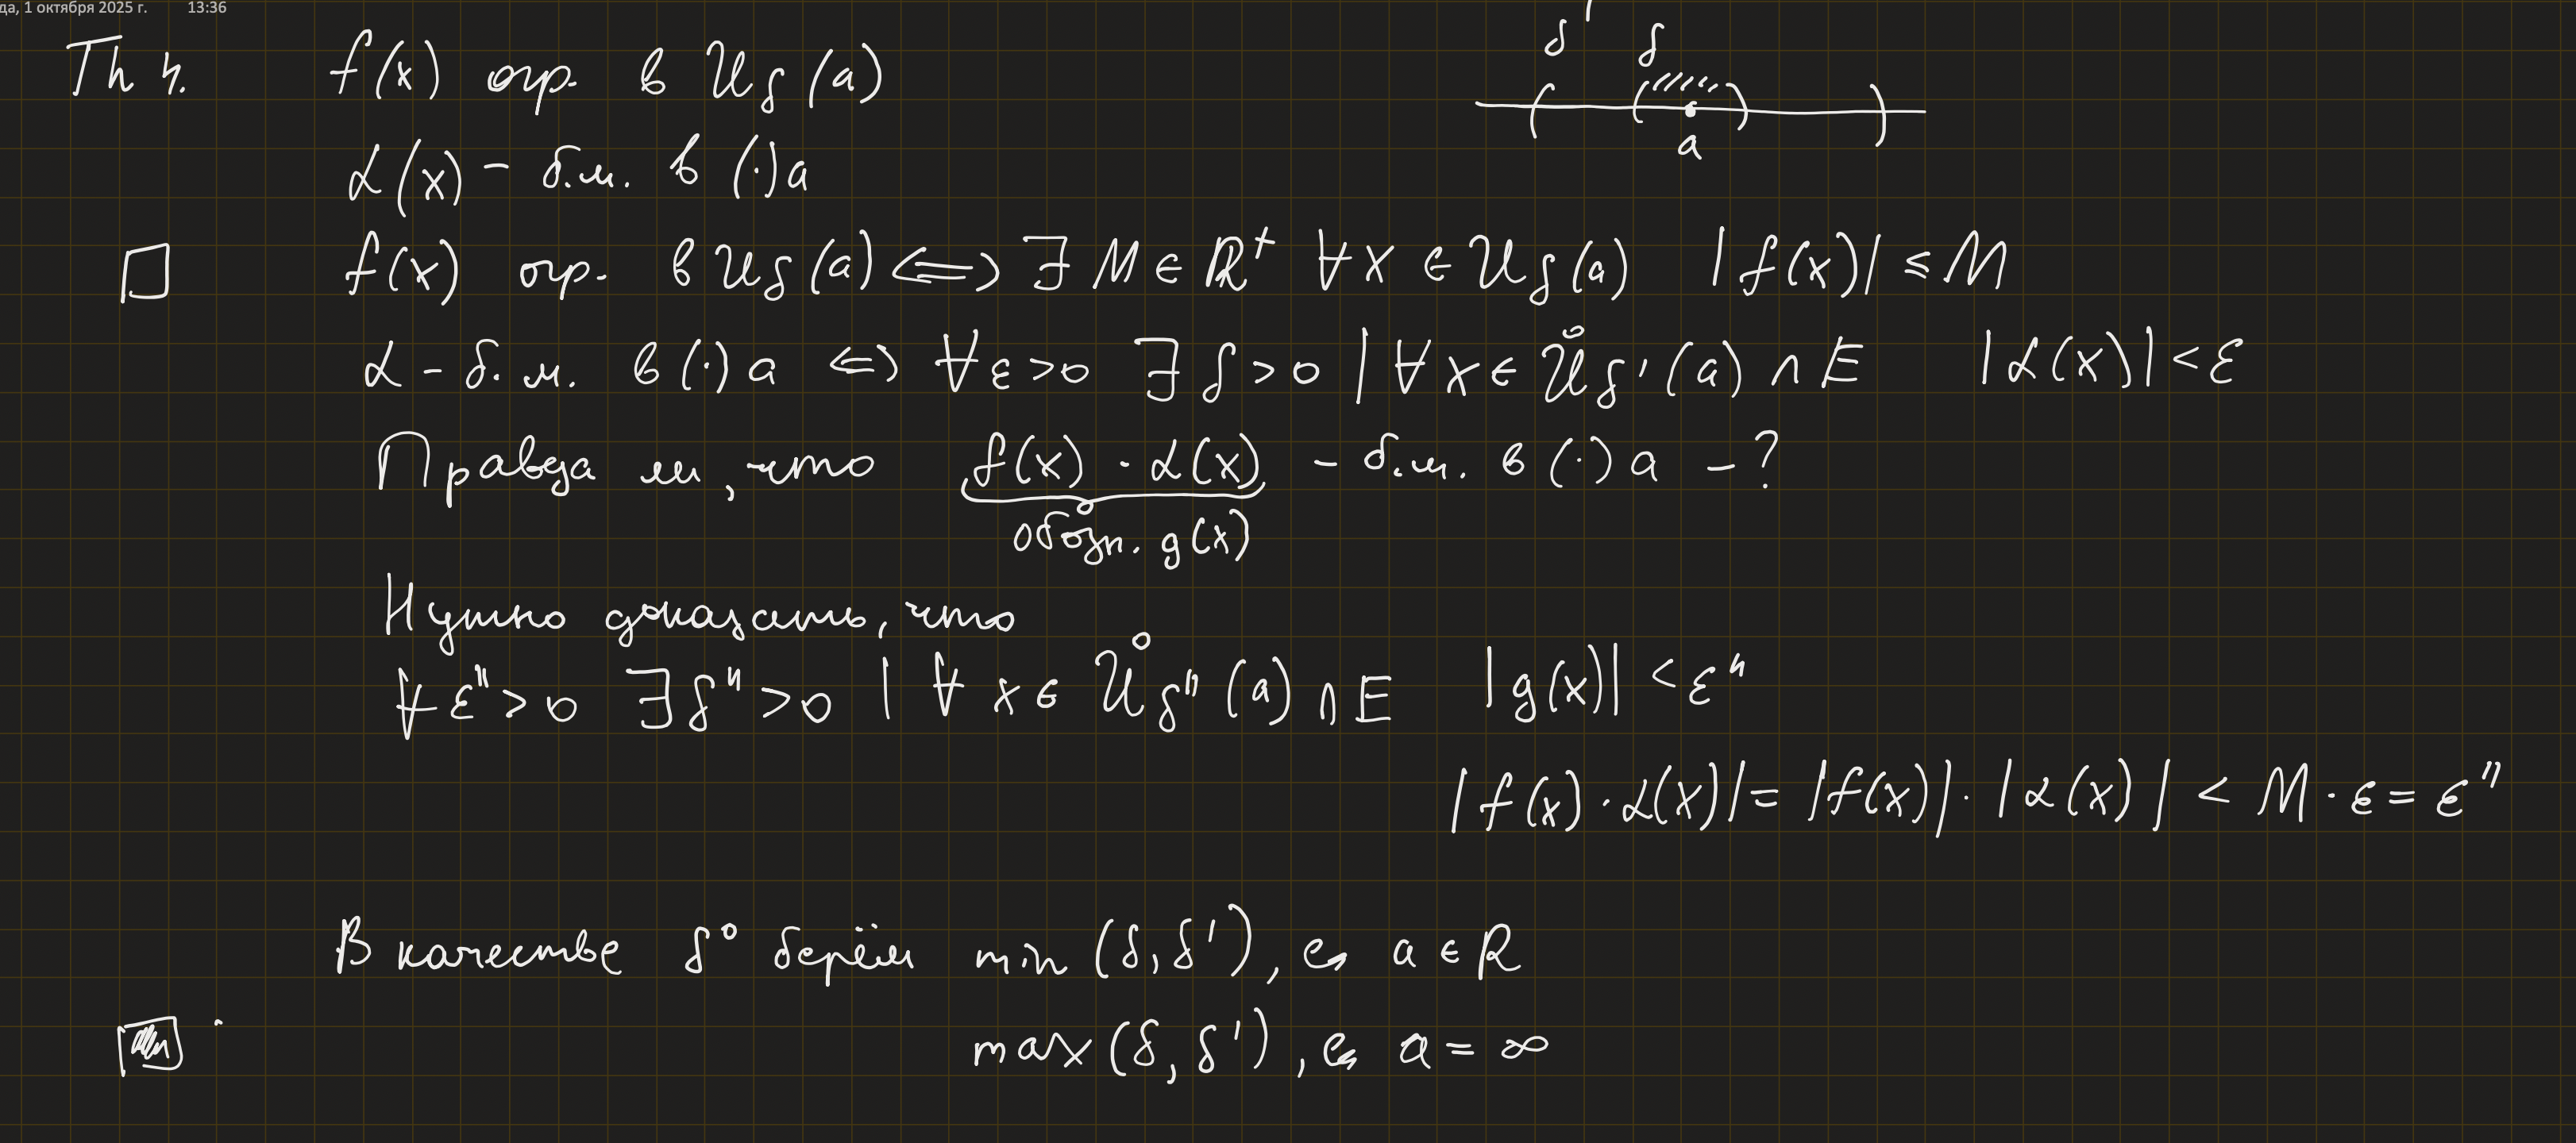 да, 1 октября 2025 г. 13:36
Th 4. f(x) огр. в U_δ(a)
δ' δ
a
α(x) – б.м. в (·)a
□ f(x) огр. в U_δ(a) ⟺ ∃ M ∈ R⁺ ∀x ∈ U_δ(a) |f(x)| ≤ M
α – б.м. в (·) a ⟺ ∀ε>0 ∃ δ>0 | ∀x ∈ Ů_δ'(a) ∩ E |α(x)| < ε
Правда ли, что f(x) · α(x) – б.м. в (·) a – ?
обозн. g(x)
Нужно доказать, что
∀ε">0 ∃δ">0 | ∀x ∈ Ů_δ"(a) ∩ E |g(x)| < ε"
|f(x)·α(x)| = |f(x)|·|α(x)| < M·ε = ε"
В качестве δ° берём min (δ, δ'), если a ∈ R
max (δ, δ'), если a = ∞